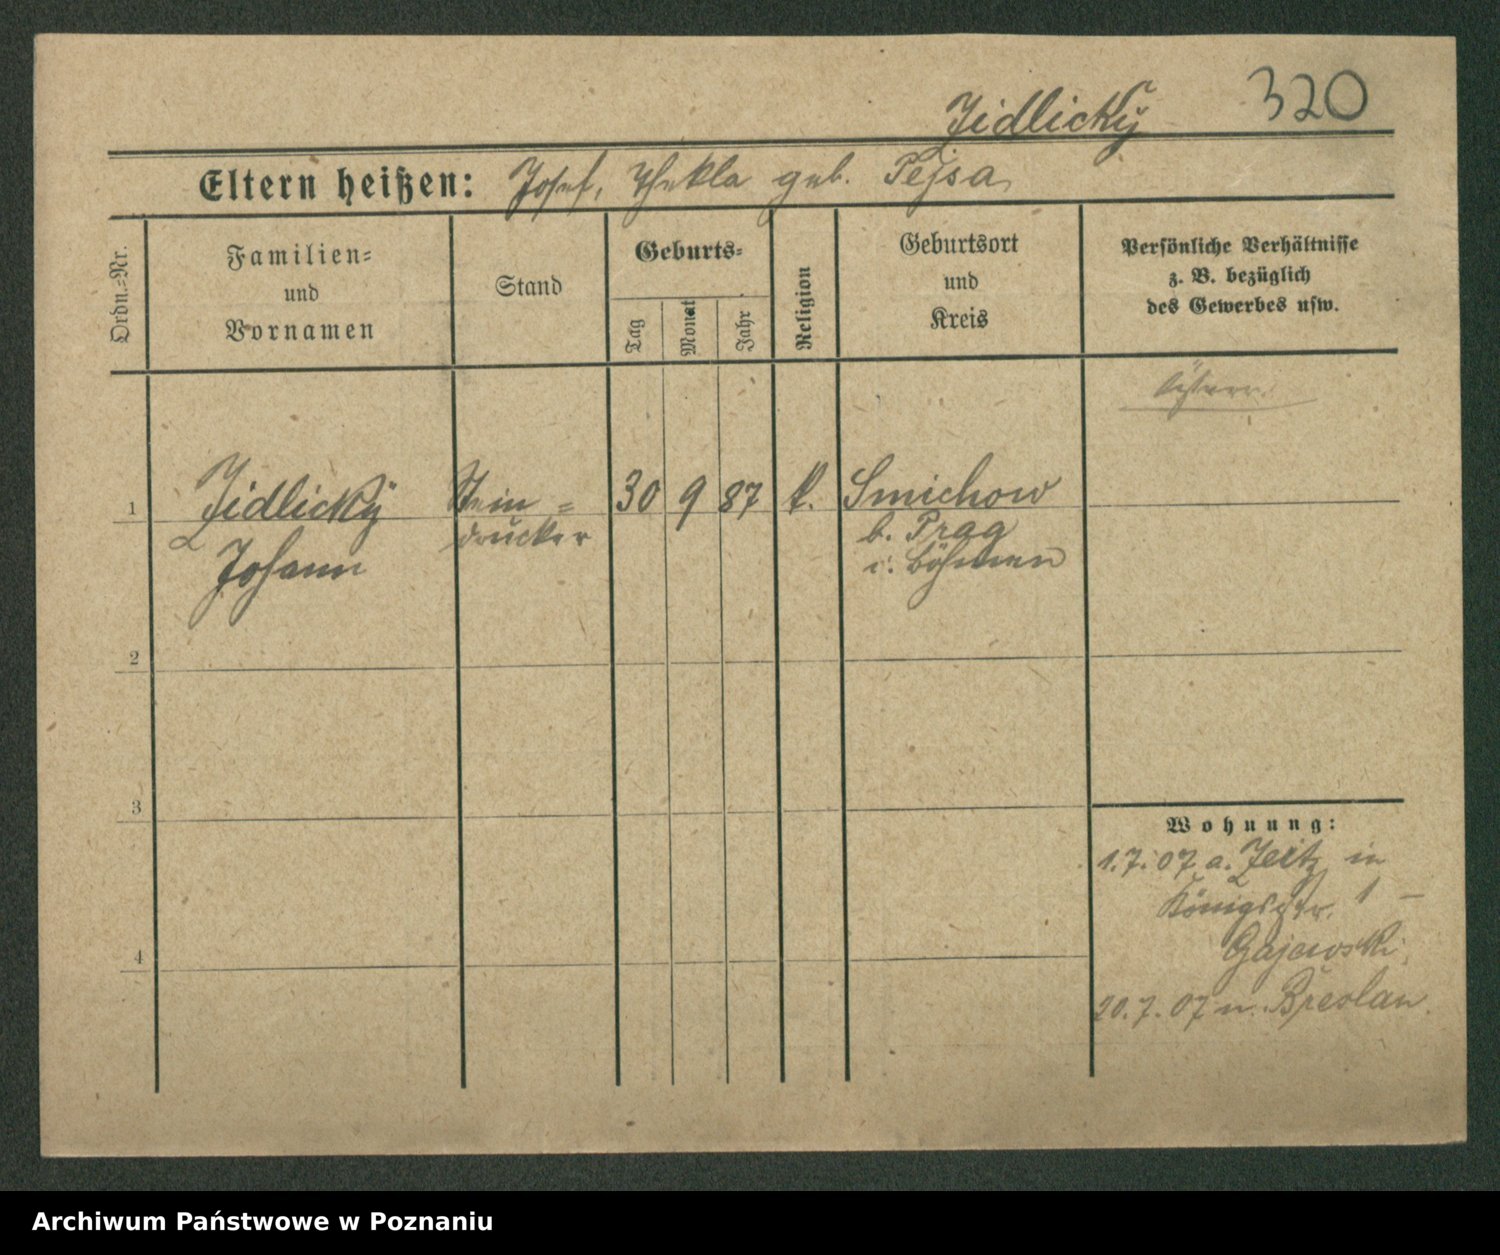 Jidlický 320
Eltern heißen: Josef, Thekla geb. Pejsa
Ordn.=Nr.
Familien=
und
Vornamen
Stand
Geburts=
Tag
Monat
Jahr
Religion
Geburtsort
und
Kreis
Persönliche Verhältnisse
z. B. bezüglich
des Gewerbes usw.
Österr.
1 Jidlický Stein= 30 9 87 k. Smichow
drucker b. Prag
Johann i. Böhmen
2
3
4
Wohnung:
1.7.07 a. Zeitz in
Königstr. 1 –
Gajewski.
20.7.07 n. Breslau.
Archiwum Państwowe w Poznaniu